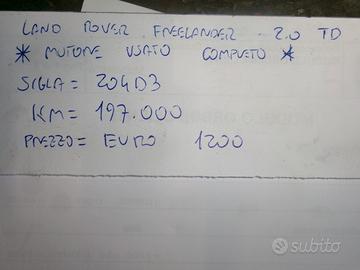 LAND ROVER FREELANDER 2.0 TD
* MOTORE USATO COMPLETO *
SIGLA = 204D3
KM = 197.000
PREZZO = EURO 1200
subito